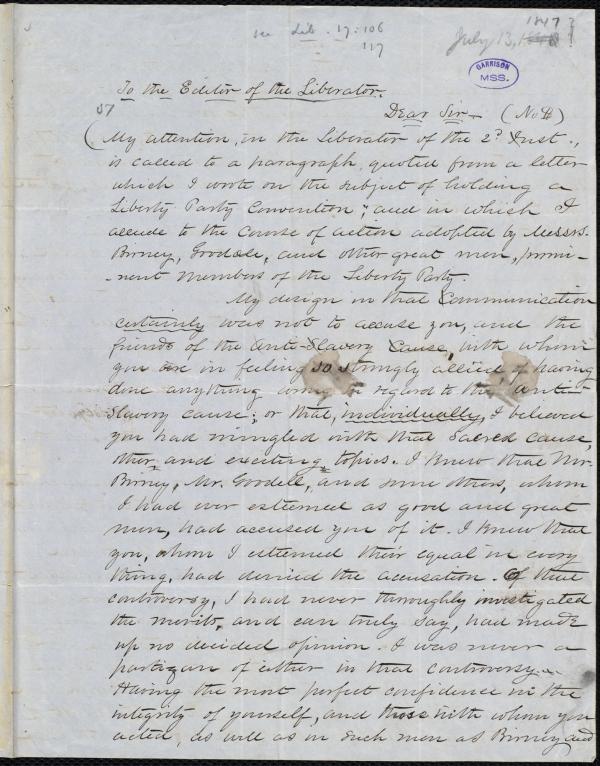 see Lib. 17:106
117
1847?
July 13, 1848!
GARRISON
MSS.
To the Editor of the Liberator.
57
Dear Sir — (No 4)
(My attention, in the Liberator of the 2d Inst.,
is called to a paragraph, quoted from a letter
which I wrote on the subject of holding a
Liberty Party Convention; and in which I
allude to the course of action adopted by Messrs.
Birney, Goodell, and other great men, promi-
-nent members of the Liberty Party.
My design in that Communication
certainly was not to accuse you, and the
friends of the Anti-Slavery Cause, with whom
you are in feeling so strongly allied, of having
done anything wrong in regard to the Anti-
Slavery cause; or that, individually, I believed
you had mingled with that sacred cause,
other, and exciting topics. I knew that Mr.
Birney, Mr. Goodell, and some others, whom
I had ever esteemed as good and great
men, had accused you of it. I knew that
you, whom I esteemed their equal in every
thing, had denied the accusation. Of that
controversy, I had never throughly investigated
the merits, and can truly say, had made
up no decided opinion. I was never a
partizan of either in that controversy.
Having the most perfect confidence in the
integrity of yourself, and those with whom you
acted, as well as in such men as Birney and